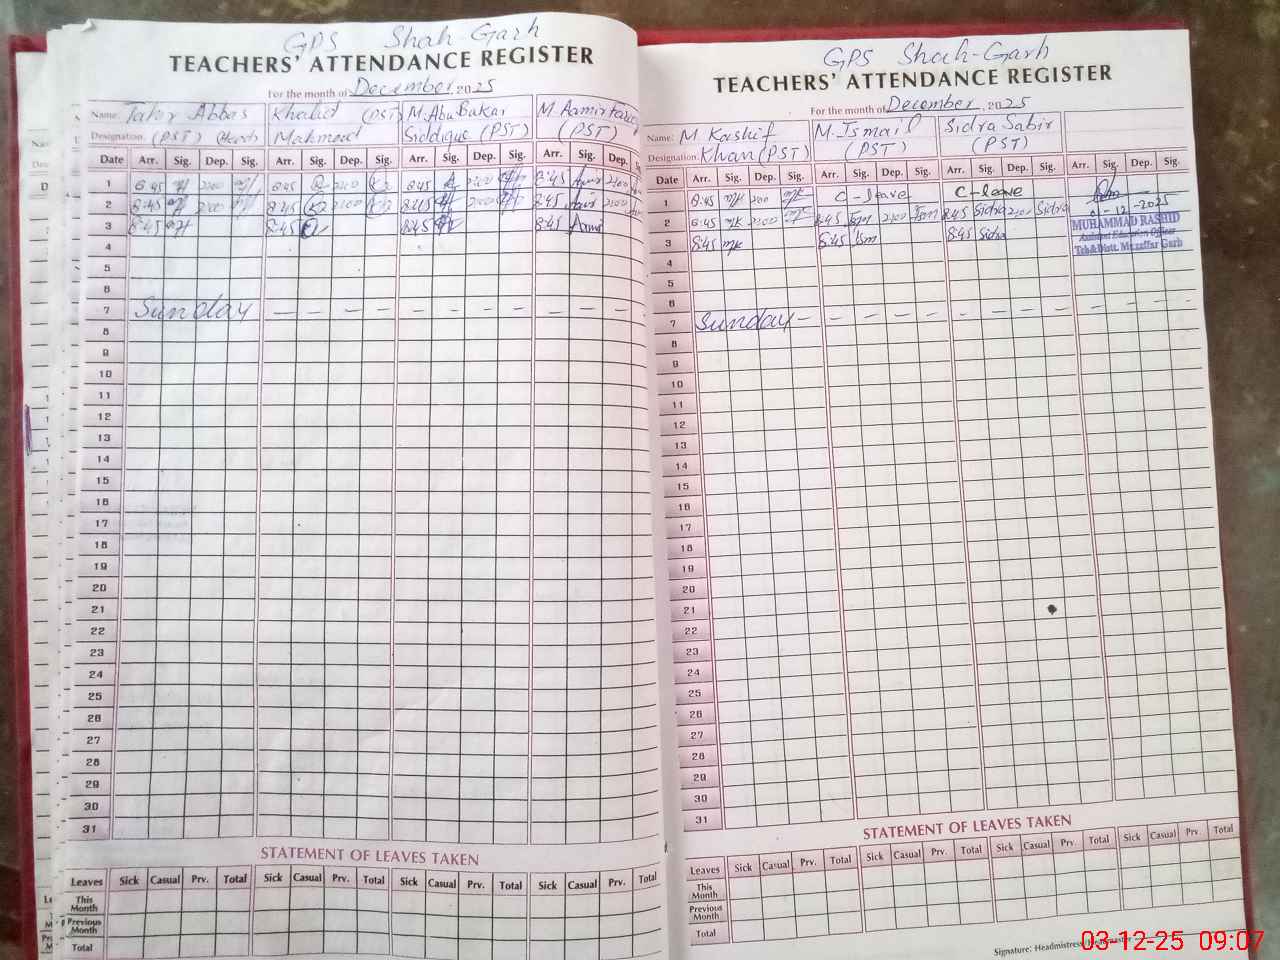 GPS Shah Garh
TEACHERS' ATTENDANCE REGISTER
For the month of December 2025
Name: Tahir Abbas Khalid (PST) M. Abu Bakar M. Aamir Farooq
Designation. (PST) (Head) Mahmood Siddique (PST) (PST)
Date Arr. Sig. Dep. Sig. Arr. Sig. Dep. Sig. Arr. Sig. Dep. Sig. Arr. Sig. Dep.
1 8:45 2:00 8:45 2:00 8:45 2:00 8:45 Aamir 2:00
2 8:45 2:00 8:45 2:00 8:45 2:00 8:45 Aamir 2:00
3 8:45 8:45 8:45 8:45 Aamir
4
5
6
7 Sunday – – – – – – – – – – – –
8
9
10
11
12
13
14
15
16
17
18
19
20
21
22
23
24
25
26
27
28
29
30
31
STATEMENT OF LEAVES TAKEN
Leaves Sick Casual Prv. Total Sick Casual Prv. Total Sick Casual Prv. Total Sick Casual Prv. Total
This Month
Previous Month
Total
GPS Shah-Garh
TEACHERS' ATTENDANCE REGISTER
For the month of December 2025
Name: M. Kashif M. Ismail Sidra Sabir
Designation. Khan (PST) (PST) (PST)
Date Arr. Sig. Dep. Sig. Arr. Sig. Dep. Sig. Arr. Sig. Dep. Sig. Arr. Sig. Dep. Sig.
1 8:45 mk 2:00 mk C-leave C-leave
2 8:45 mk 2:00 mk 8:45 Ism 2:00 Ism 8:45 Sidra 2:00 Sidra 01-12-2025
MUHAMMAD RASHID
3 8:45 mk 8:45 Ism 8:45 Sidra
Assistant Education Officer
Teh & Distt. Muzaffar Garh
4
5
6
7 Sunday – – – – – – – – – –
8
9
10
11
12
13
14
15
16
17
18
19
20
21
22
23
24
25
26
27
28
29
30
31
STATEMENT OF LEAVES TAKEN
Leaves Sick Casual Prv. Total Sick Casual Prv. Total Sick Casual Prv. Total Sick Casual Prv. Total
This Month
Previous Month
Total
Signature: Headmistress/Headmaster
03-12-25 09:07